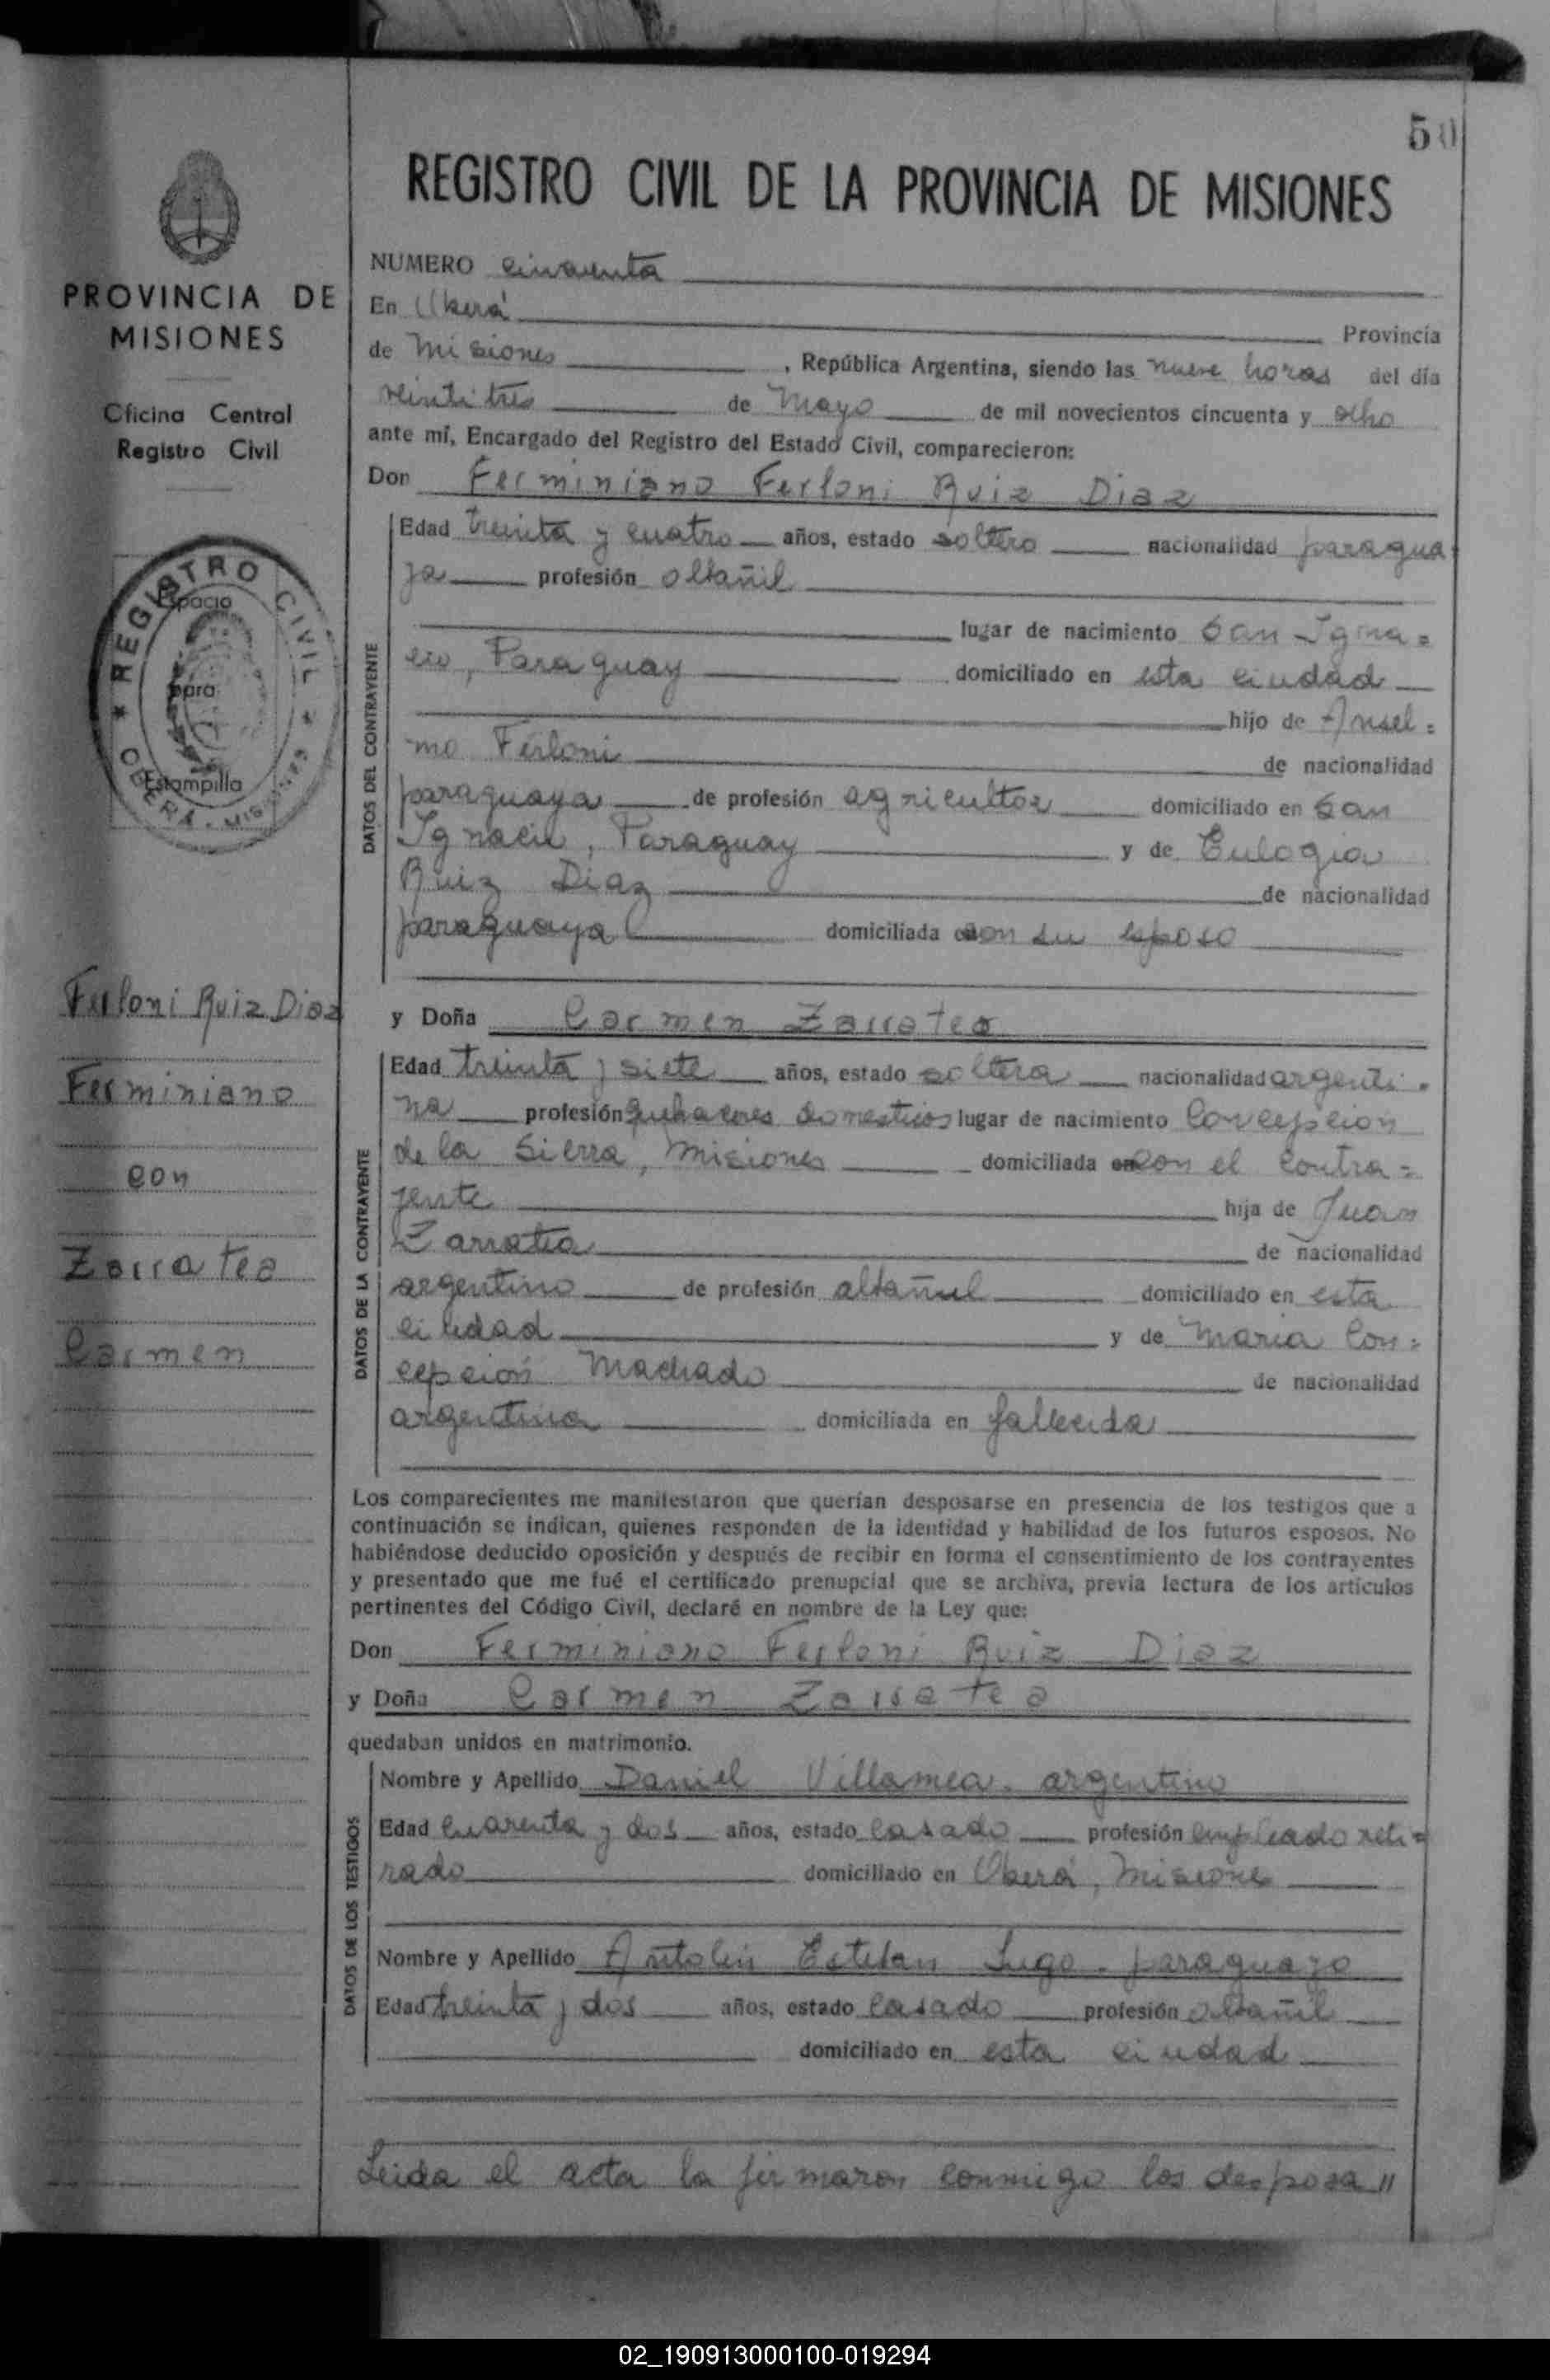 50
REGISTRO CIVIL DE LA PROVINCIA DE MISIONES
PROVINCIA DE
MISIONES
Oficina Central
Registro Civil
REGISTRO CIVIL
Espacio
para
Estampilla
OBERÁ - MISIONES
Ferloni Ruiz Diaz
Ferminiano
con
Zarratea
Carmen
NUMERO cincuenta
En Oberá Provincia
de Misiones , República Argentina, siendo las nueve horas del día
veintitres de Mayo de mil novecientos cincuenta y ocho
ante mí, Encargado del Registro del Estado Civil, comparecieron:
Don Ferminiano Ferloni Ruiz Diaz
DATOS DEL CONTRAYENTE
Edad treinta y cuatro años, estado soltero nacionalidad paragua
ya profesión albañil
lugar de nacimiento San Igna=
cio, Paraguay domiciliado en esta ciudad
hijo de Ansel=
mo Ferloni de nacionalidad
paraguaya de profesión agricultor domiciliado en San
Ignacio, Paraguay y de Eulogia
Ruiz Diaz de nacionalidad
paraguaya domiciliada con su esposo
y Doña Carmen Zarratea
DATOS DE LA CONTRAYENTE
Edad treinta y siete años, estado soltera nacionalidad argenti=
na profesión quehaceres domesticos lugar de nacimiento Concepcion
de la Sierra, Misiones domiciliada con el contra=
yente hija de Juan
Zarratea de nacionalidad
argentino de profesión albañil domiciliado en esta
ciudad y de Maria Con=
cepción Machado de nacionalidad
argentina domiciliada en fallecida
Los comparecientes me manifestaron que querían desposarse en presencia de los testigos que a
continuación se indican, quienes responden de la identidad y habilidad de los futuros esposos. No
habiéndose deducido oposición y después de recibir en forma el consentimiento de los contrayentes
y presentado que me fué el certificado prenupcial que se archiva, previa lectura de los artículos
pertinentes del Código Civil, declaré en nombre de la Ley que:
Don Ferminiano Ferloni Ruiz Diaz
y Doña Carmen Zarratea
quedaban unidos en matrimonio.
DATOS DE LOS TESTIGOS
Nombre y Apellido Daniel Villamea. argentino
Edad cuarenta y dos años, estado casado profesión empleado reti=
rado domiciliado en Oberá, Misiones
Nombre y Apellido Antolin Esteban Lugo. paraguayo
Edad treinta y dos años, estado casado profesión albañil
domiciliado en esta ciudad
Leida el acta la firmaron conmigo los desposa"
02_190913000100-019294